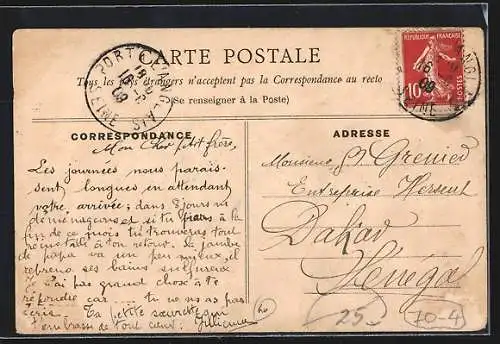 CARTE POSTALE
Tous les pays étrangers n'acceptent pas la Correspondance au recto
(Se renseigner à la Poste)
RÉPUBLIQUE FRANÇAISE
10
POSTES
CORRESPONDANCE
ADRESSE
Mon Cher petit frère,
Les journées nous parais-
sent longues en attendant
votre arrivée; dans 8 jours
déménageurs et si tu pars à la
fin de ce mois tu trouveras tout
à ton retour. La jambe
de papa va un peu mieux, il
ses bains sulfureux
Je n'ai pas grand chose à te
répondre car .... tu ne m'as pas
écris. Ta petite sœurette qui
t'embrasse de tout cœur:
Monsieur Grenier
Entreprise Hersent
Dakar
Sénégal
25
70-4